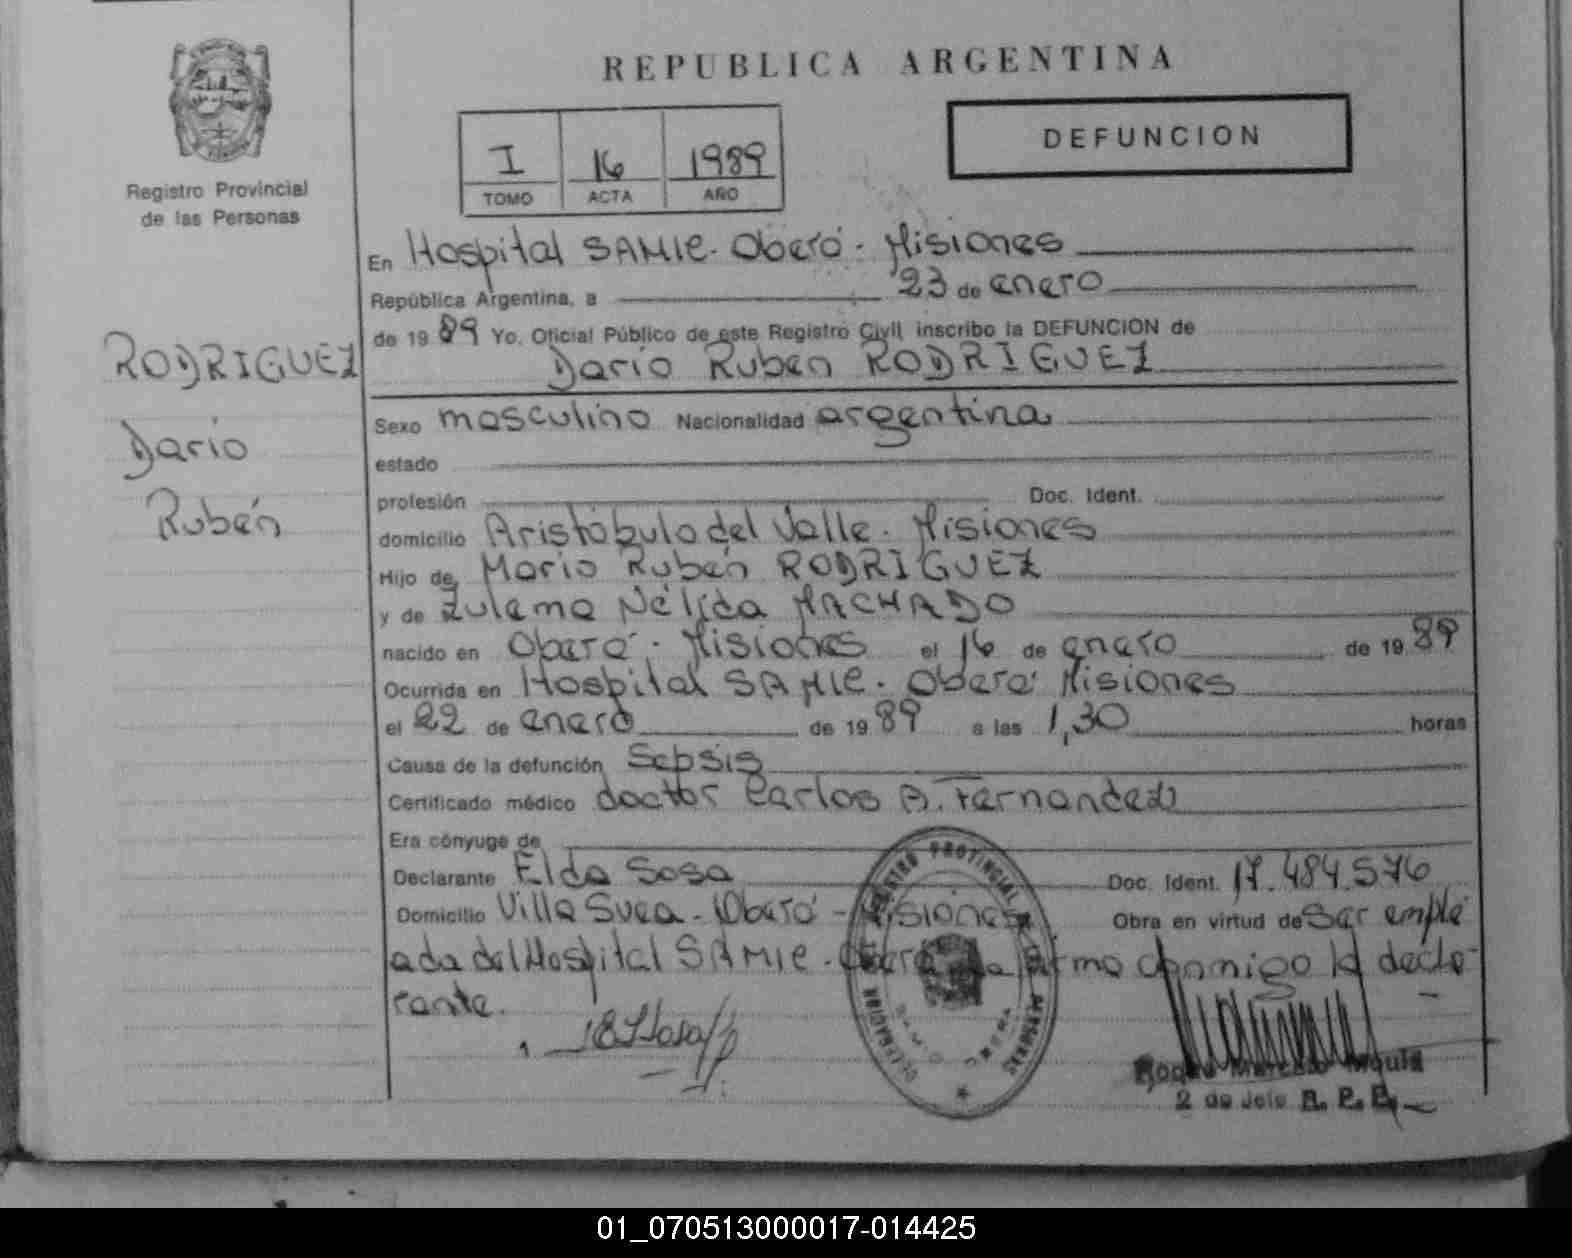 REPUBLICA ARGENTINA
Registro Provincial
de las Personas
I 16 1989
TOMO ACTA AÑO
DEFUNCION
En Hospital SAMIC. Oberá - Misiones
República Argentina, a 23 de enero
de 1989 Yo, Oficial Público de este Registro Civil, inscribo la DEFUNCION de
Dario Ruben RODRIGUEZ
RODRIGUEZ
Dario
Rubén
Sexo masculino Nacionalidad argentina
estado
profesión Doc. Ident.
domicilio Aristóbulo del Valle. Misiones
Hijo de Mario Rubén RODRIGUEZ
y de Zulema Nélida MACHADO
nacido en Oberá - Misiones el 16 de enero de 1989
Ocurrida en Hospital SAMIC. Oberá Misiones
el 22 de enero de 1989 a las 1,30 horas
Causa de la defunción Sepsis
Certificado médico doctor Carlos A. Fernandez
Era cónyuge de
Declarante Elda Sosa Doc. Ident. 17.484.576
Domicilio Villa Svea - Oberá - Misiones Obra en virtud de ser emple
ada del Hospital SAMIC. Oberá firma conmigo la decla-
rante.
REGISTRO PROVINCIAL DE LAS PERSONAS
DELEGACION
SAMIC OBERA
2 de Jefe R. P. P.
01_070513000017-014425